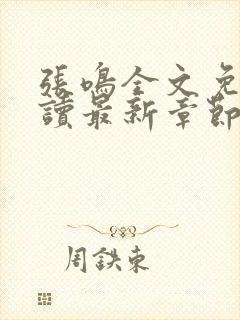 張鳴全文免
讀最新章節
周鉄東